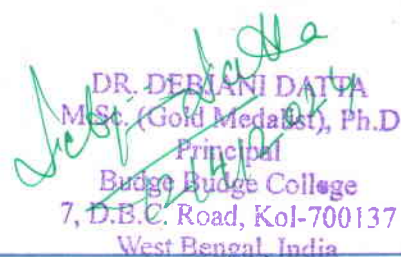 DR. DEBJANI DATTA
M.Sc. (Gold Medalist), Ph.D
Principal
Budge Budge College
7, D.B.C. Road, Kol-700137
West Bengal, India